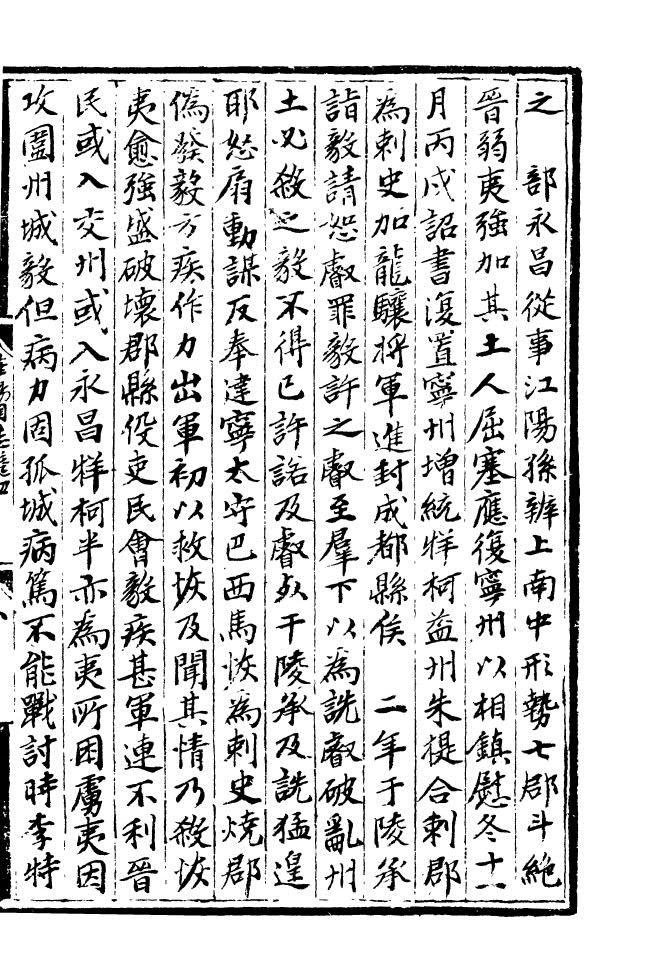 之　部永昌從事江陽孫辨上南中形勢七郡斗絶
晉弱夷強加其土人屈塞應復寧州以相鎮慰冬十一
月丙戌詔書復置寧州增統牂柯益州朱提合刺郡
為刺史加龍驤將軍進封成都縣侯　二年于陵承
詣毅請恕叡罪毅許之叡至羣下以為詵叡破亂州
土必殺之毅不得已許諾及叡死于陵承及詵猛遑
耶怒扇動謀反奉建寧太守巴西馬恢為刺史燒郡
偽發毅方疾作力出軍初以救恢及聞其情乃殺恢
夷愈強盛破壞郡縣役吏民會毅疾甚軍連不利晉
民或入交州或入永昌牂柯半亦為夷所困虜夷因
攻圍州城毅但病力固孤城病篤不能戰討時李特